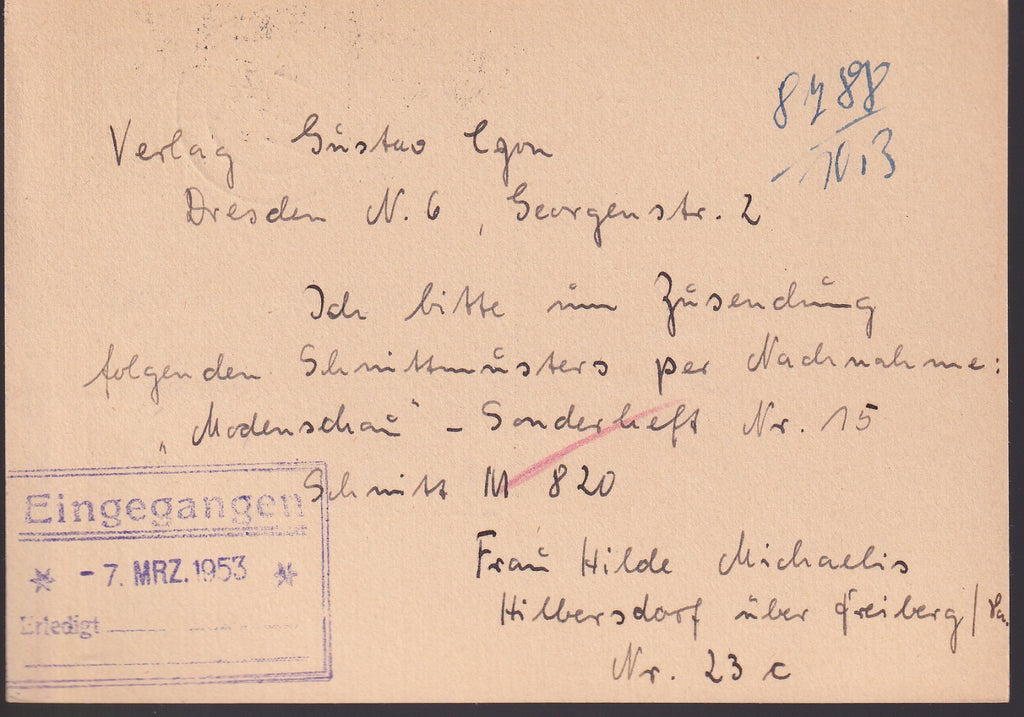 Verlag Gustav Egon
Dresden N. 6, Georgenstr. 2
Ich bitte um Zusendung
folgenden Schnittmusters per Nachnahme:
„Modenschau" - Sonderheft Nr. 15
Schnitt M 820
Frau Hilde Michaelis
Hilbersdorf über Freiberg / Sa.
Nr. 23 c
Eingegangen
- 7. MRZ. 1953
Erledigt